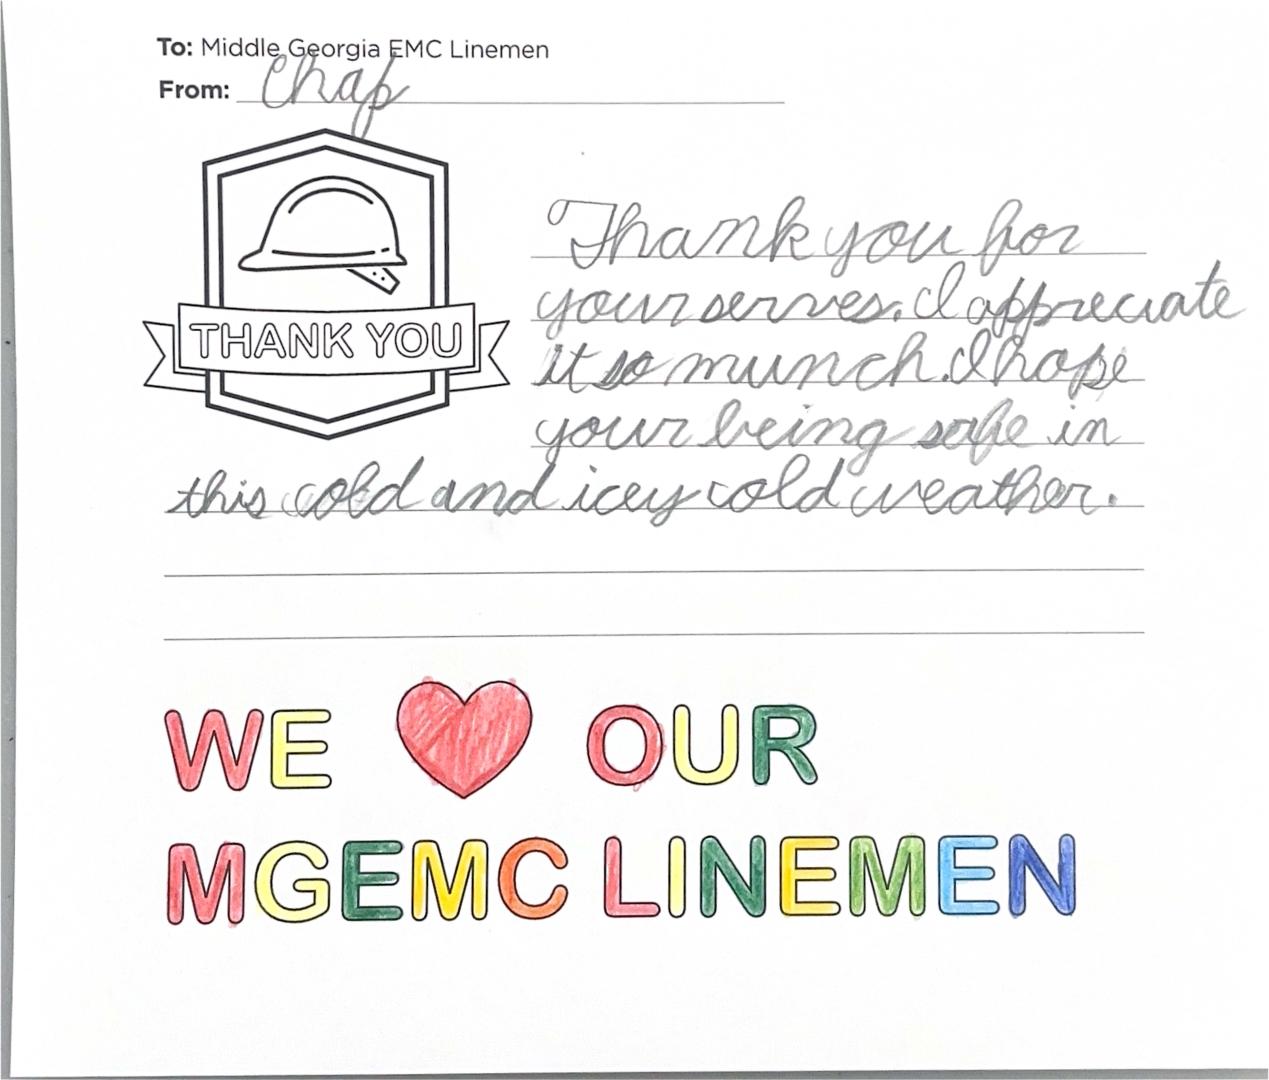 To: Middle Georgia EMC Linemen
From: Chap
THANK YOU
Thank you for
your serves. I appreciate
it so munch. I hope
your being safe in
this cold and icey cold weather.
WE OUR
MGEMC LINEMEN